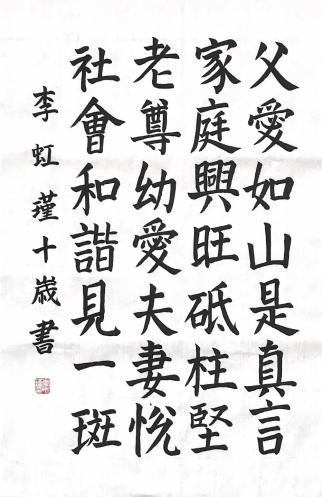 父愛如山是真言
家庭興旺砥柱堅
老尊幼愛夫妻悅
社會和諧見一斑
李虹瑾十歲書